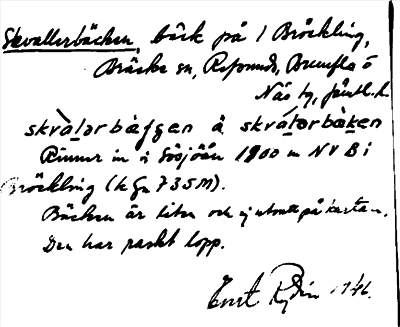 Skvallerbäcken, bäck på 1 Bröckling,
Bräcke sn, Refsunds, Brunflo o
Näs tg, Jämtl. l.
skvàlərbàfgen å skválərbàken
Rinner in i Gösjöån 1900 m NV B i
Bröckling (k fn 735 M).
Bäcken är liten och ej utsatt på kartan.
Den har raskt lopp.
Ernst Rydin 1946.